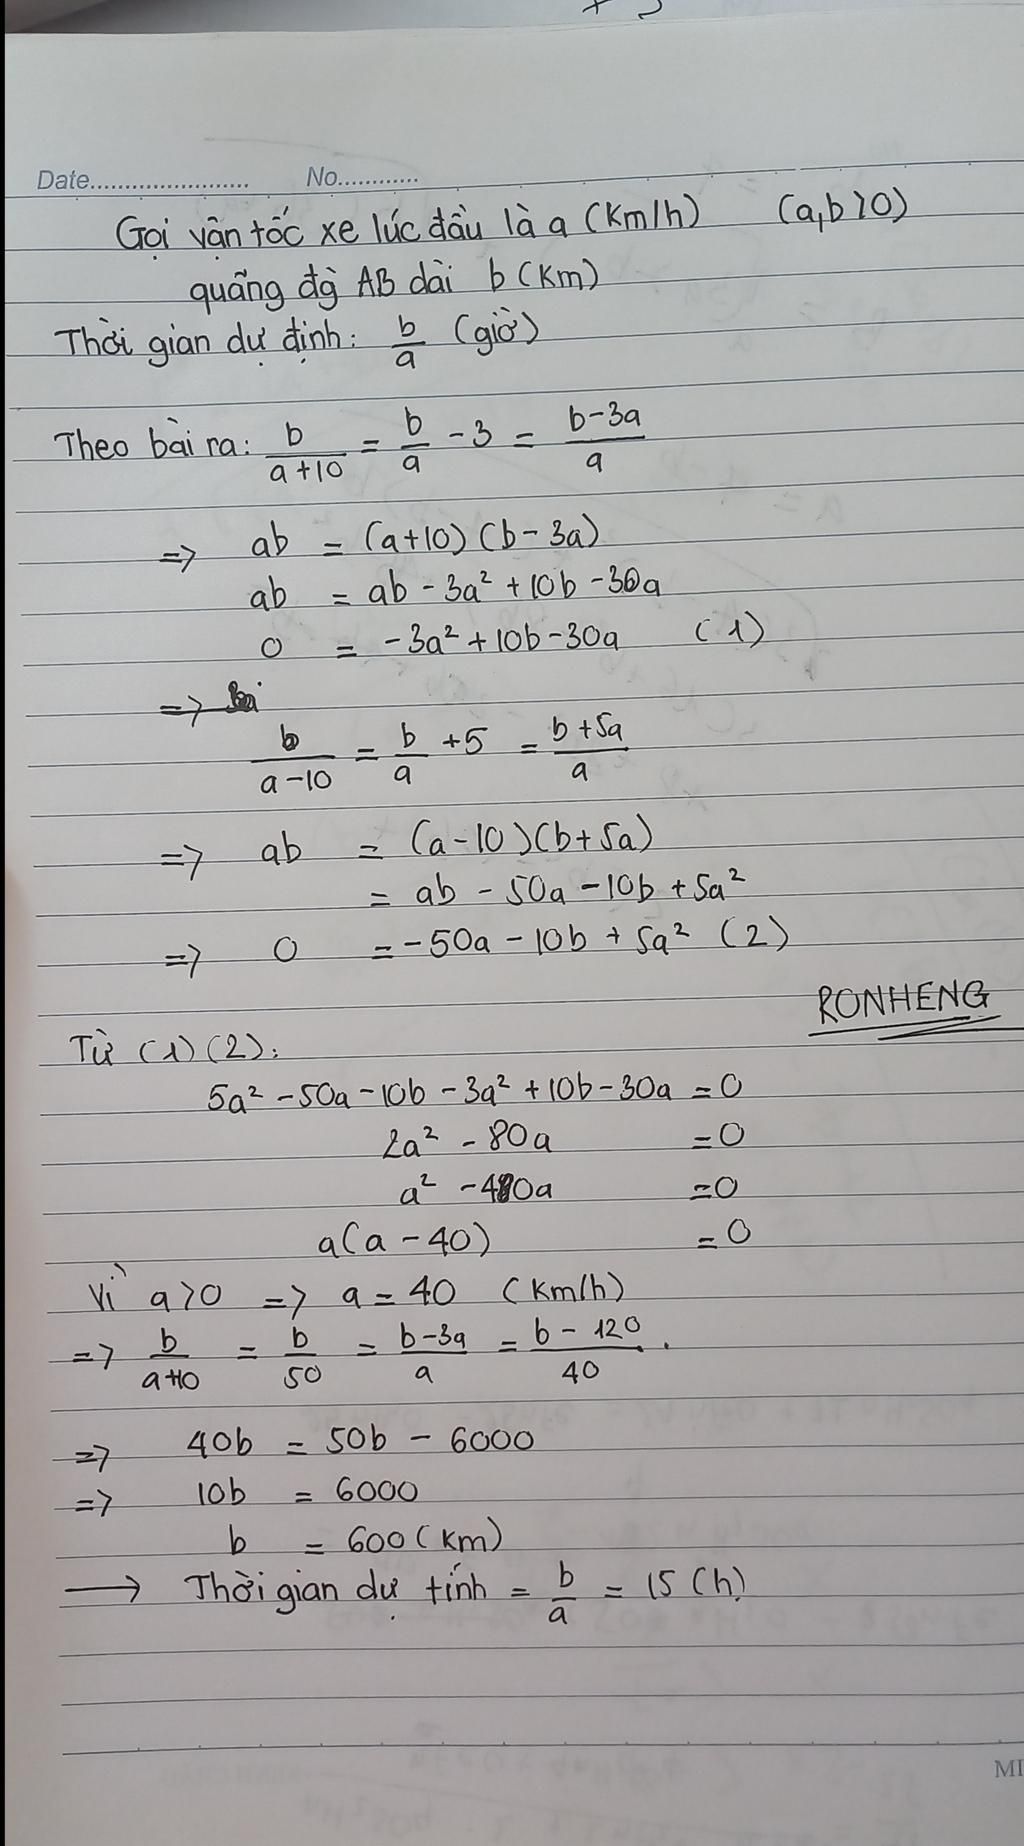 Date........................ No............
Gọi vận tốc xe lúc đầu là a (km/h) (a,b>0)
quãng đg AB dài b (km)
Thời gian dự định: b/a (giờ)
Theo bài ra: b/(a+10) = b/a - 3 = (b-3a)/a
=> ab = (a+10)(b-3a)
ab = ab - 3a² + 10b - 30a
0 = -3a² + 10b - 30a (1)
=>
b/(a-10) = b/a + 5 = (b+5a)/a
=> ab = (a-10)(b+5a)
= ab - 50a - 10b + 5a²
=> 0 = -50a - 10b + 5a² (2)
RONHENG
Từ (1)(2):
5a² - 50a - 10b - 3a² + 10b - 30a = 0
2a² - 80a = 0
a² - 40a = 0
a(a - 40) = 0
Vì a>0 => a = 40 (km/h)
=> b/(a+10) = b/50 = (b-3a)/a = (b-120)/40.
=> 40b = 50b - 6000
=> 10b = 6000
b = 600 (km)
→ Thời gian dự tính = b/a = 15 (h)
MI